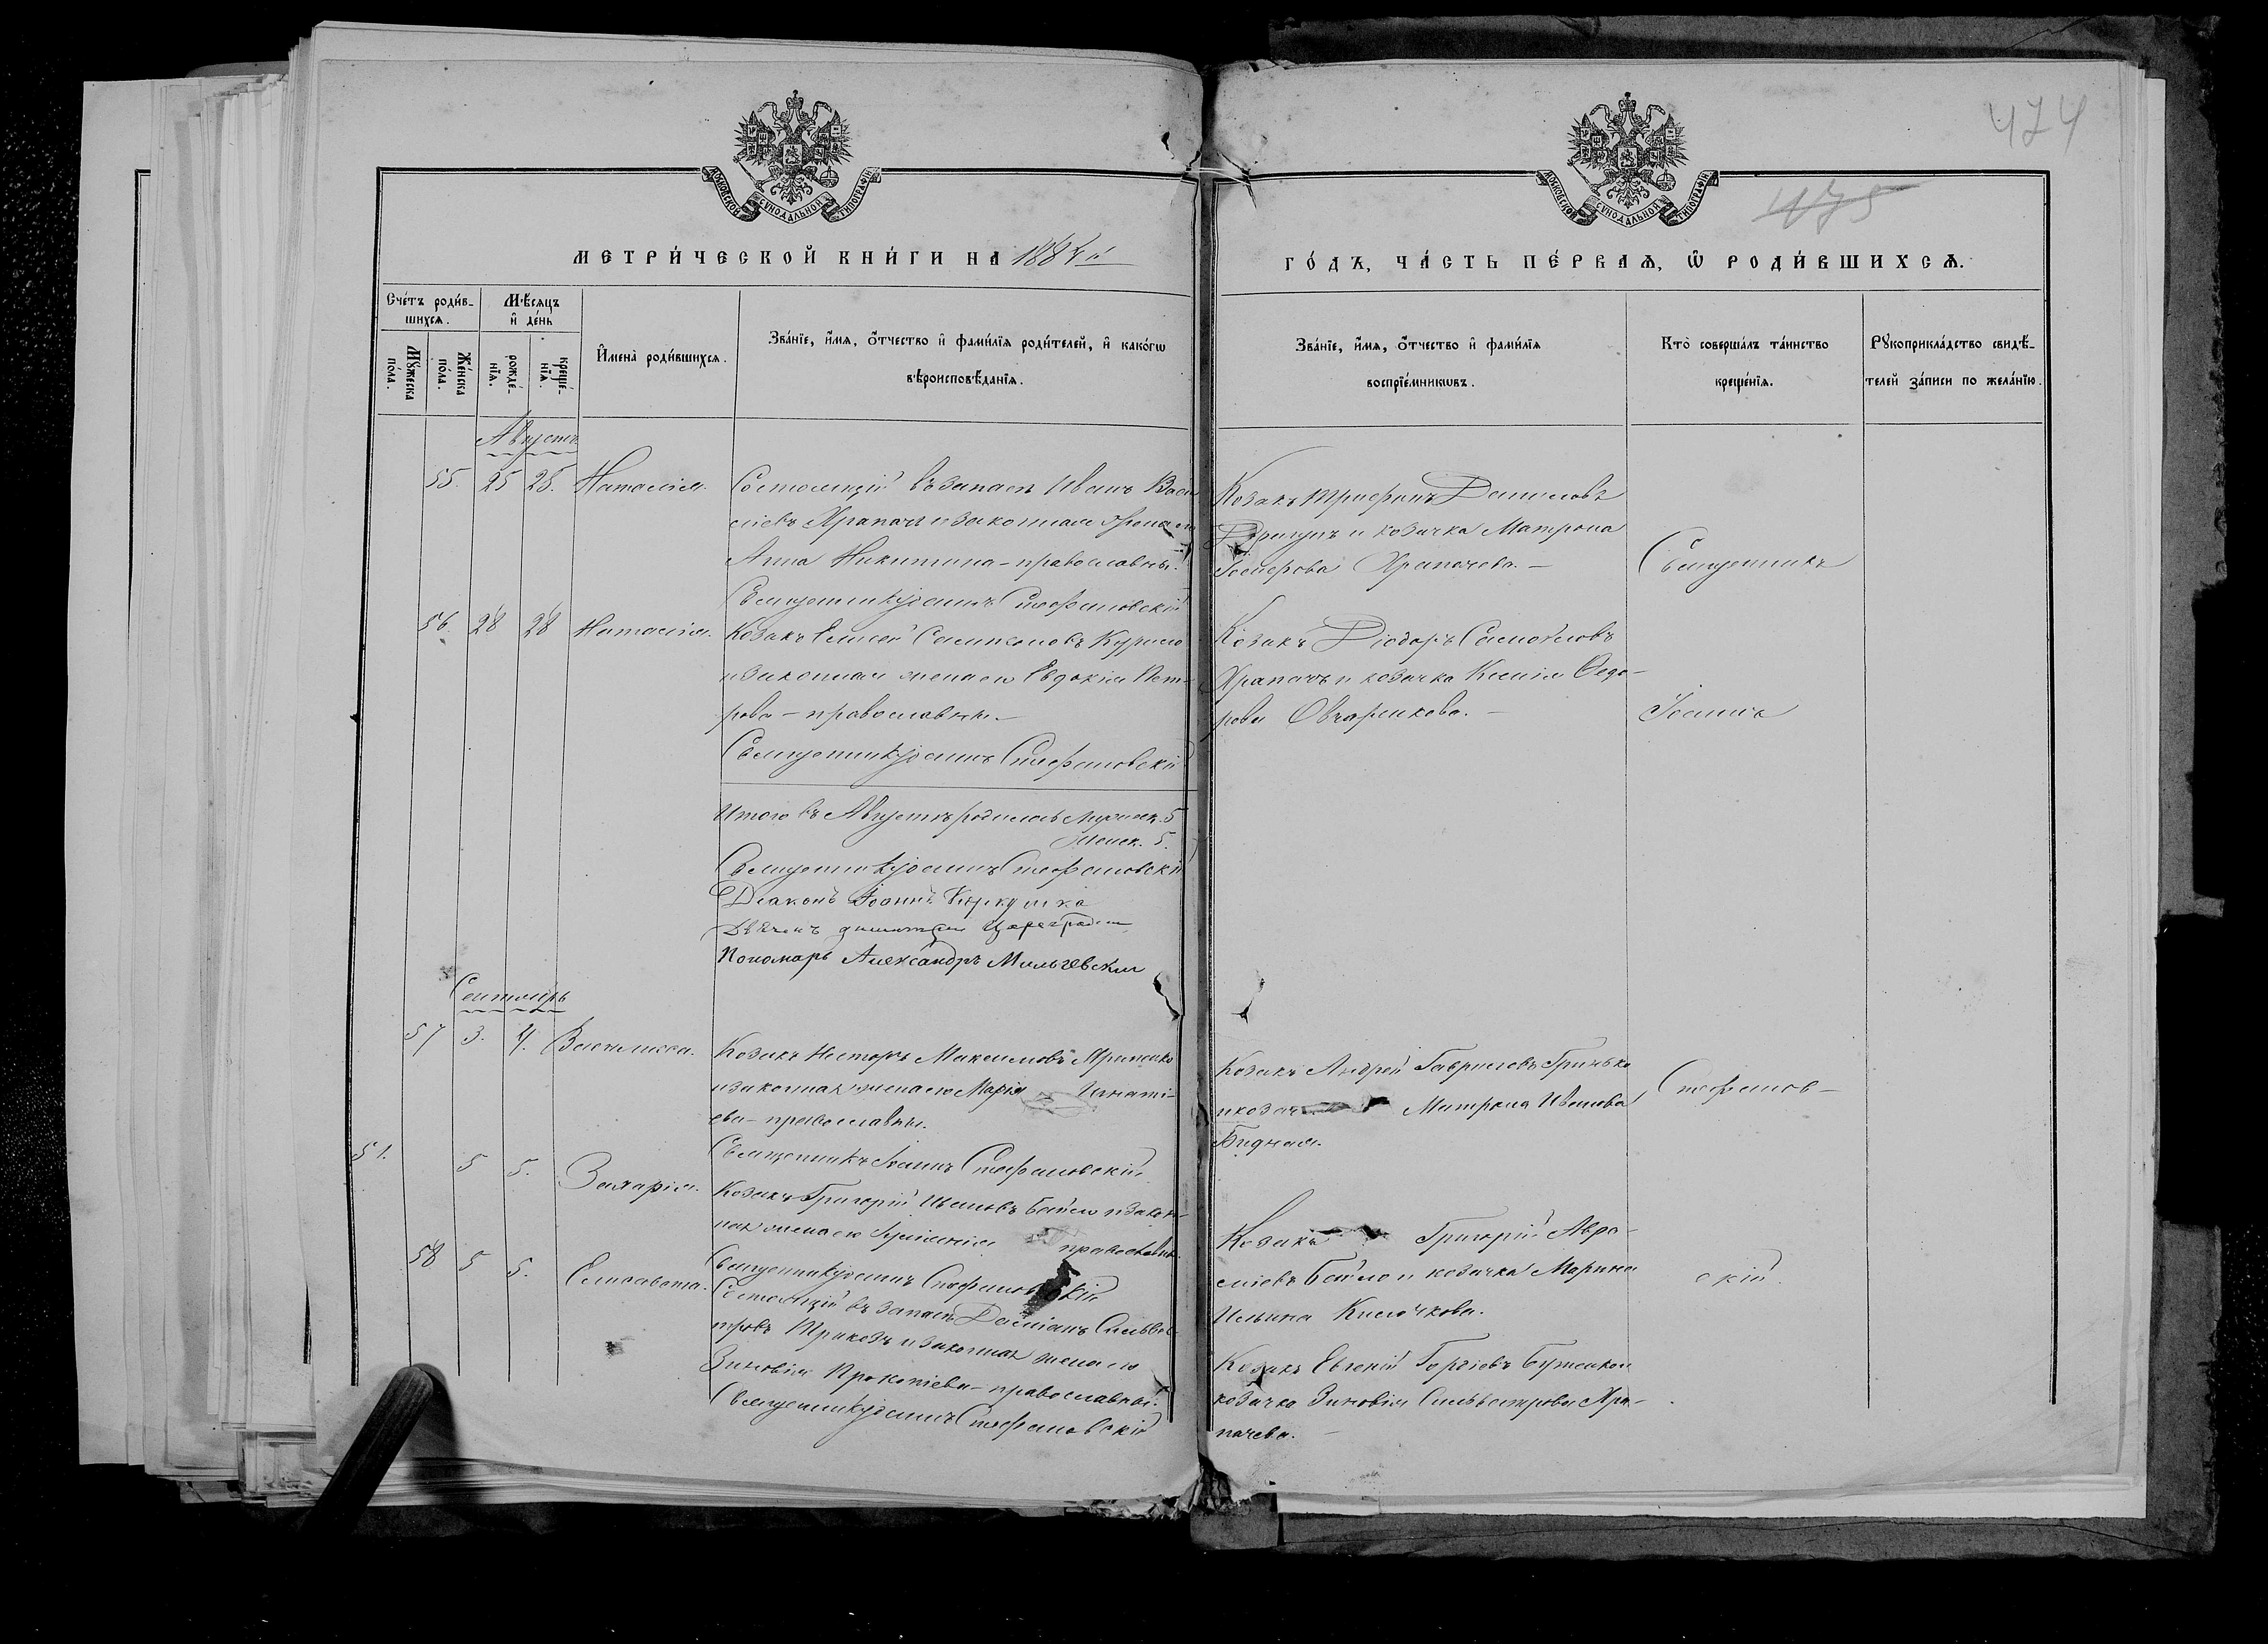 474
475
МОСКОВСКОЙ СѴНОДАЛЬНОЙ ТИПОГРАФІИ
МОСКОВСКОЙ СѴНОДАЛЬНОЙ ТИПОГРАФІИ
МЕТРИ́ЧЕСКОЙ КНИ́ГИ НА 1884й
ГО́ДЪ, ЧА́СТЬ ПЕ́РВАѦ, Ѿ РОДИ́ВШИХСѦ.
Сче́тъ роди́в-
шихсѧ.
Мѣ́сѧцъ
и҆ де́нь
Мꙋ́жеска по́ла.
Же́нска по́ла.
рожде́-
нїѧ.
креще́-
нїѧ.
И҆мена̀ роди́вшихсѧ.
Зва́нїе, и҆́мѧ, ѻ҆́тчество и҆ фами́лїѧ роди́телей, и҆ како́гѡ
вѣроисповѣ́данїѧ.
Зва́нїе, и҆́мѧ, ѻ҆́тчество и҆ фами́лїѧ
воспрїе́мникѡвъ.
Кто̀ соверша́лъ та́инство
креще́нїѧ.
Рꙋкоприкла́дство свидѣ́-
телей за́писи по жела́нїю.
Августъ
55. 25 25. Наталія.
Состоящій въ запасѣ Иванъ Васи
ліевъ Храпачъ и законная жена его
Анна Никитина - православны.
Священникъ Іоаннъ Стефановскій
Козакъ Трифонъ Даниловъ
и козачка Матрона
Храпачева. -
Священникъ
56. 28 28 Наталія.
Козакъ Елисей Сампсоновъ Курило
и законная жена его Евдокія Пет-
рова - православны. -
Священникъ Іоаннъ Стефановскій
Козакъ Діодоръ Самойловъ
Храпачъ и козачка Ксенія Ѳедо-
рова Овчаренкова. -
Іоаннъ
Итого въ Августѣ родилось Мужеск. 5
Женск. 5.
Священникъ Іоаннъ Стефановскій
Діаконъ Іоаннъ
Пономарь Александръ Мильчевскій
Сентябрь
57 3. 4. Василисса.
Козакъ Несторъ Максимовъ
и законная жена его Марія Игнаті-
ева - православны.
Священникъ Іоаннъ Стефановскій
Козакъ Андрей Гавриловъ Гринько
и козач Матрона Иванова
Бидная.
Стефанов-
51. 5 5. Захарія.
Козакъ Григорій Ивановъ Байло и закон-
ная жена его православны
Священникъ Іоаннъ Стефановскій
Козакъ Григорій Авра-
міевъ Байло и козачка Марина
Ильина Кислочкова.
скій.
58 5 5. Елисавета.
Состоящій въ запасѣ Даміанъ Сильвес-
тровъ и законная жена его
Зиновія Прокопіева - православны.
Священникъ Іоаннъ Стефановскій
Козакъ Евгеній Гордіевъ Бутенко и
козачка Зиновія Сильвестрова Хра-
пачева. -